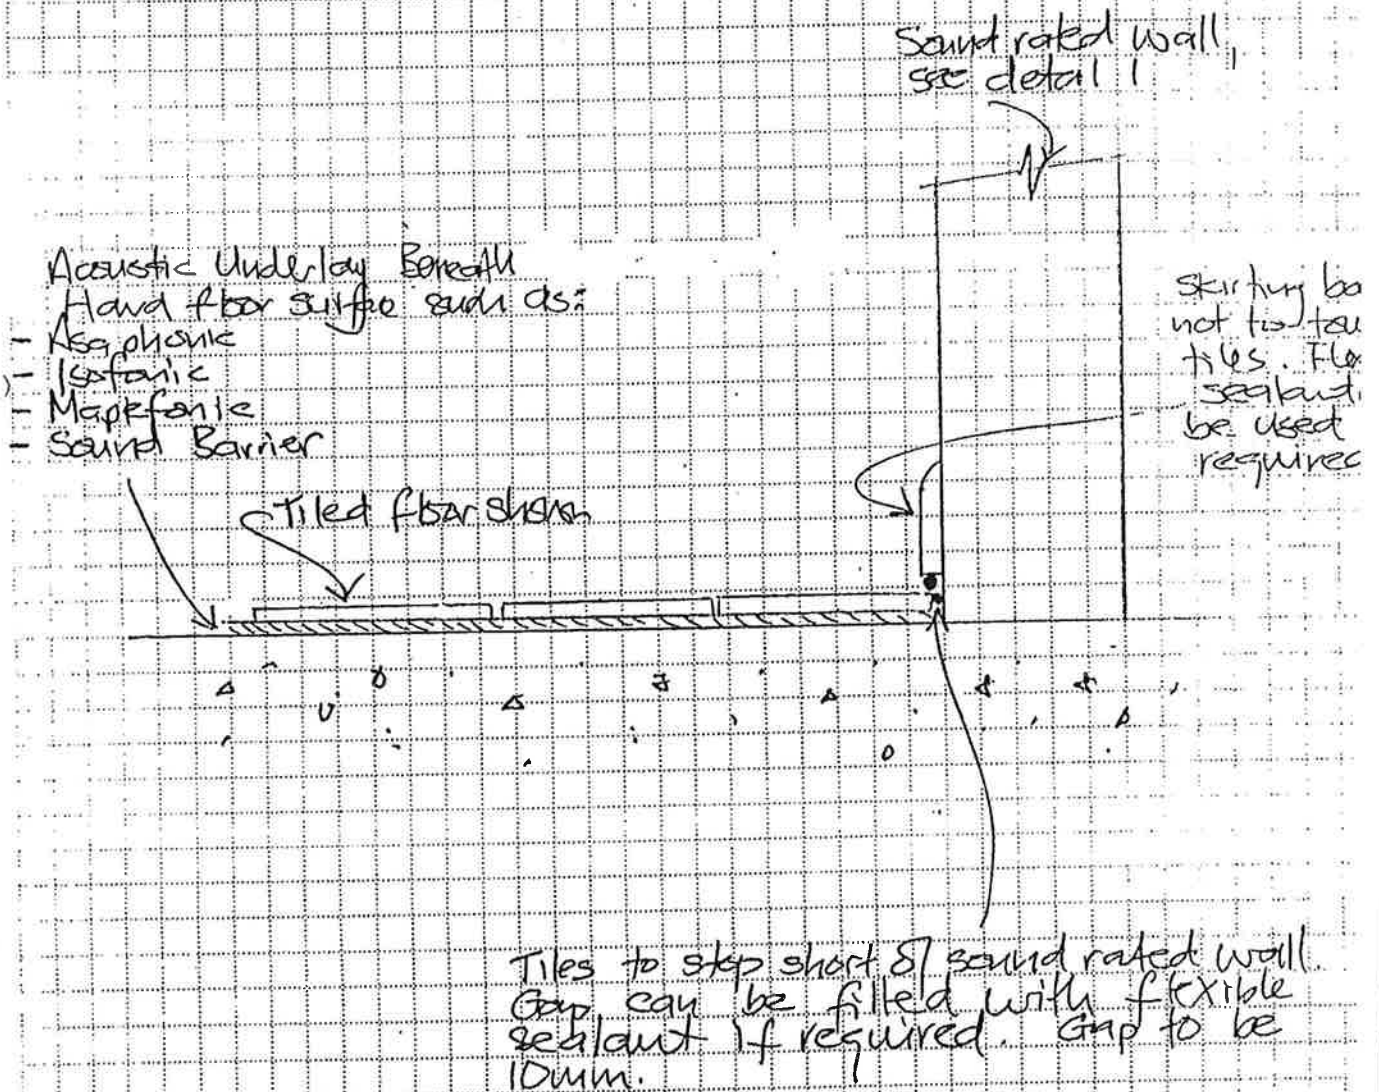 Sound rated wall,
see detail 1
Acoustic Underlay Beneath
Hard floor surface such as:
- Asaphonic
- Isofonic
- Mapefonic
- Sound Barrier
Tiled floor shown
skirting bo
not to tou
tiles. Fle
sealant
be used
required
Tiles to stop short of sound rated wall.
Gap can be filled with flexible
sealant if required. Gap to be
10mm.